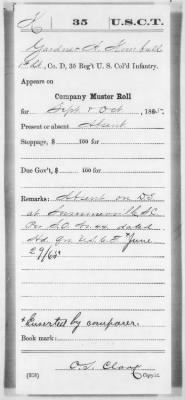 K | 35 | U.S.C.T.
Gardner A. Kimball
Pvt., Co. D, 35 Reg't U. S. Col'd Infantry.
Appears on
Company Muster Roll
for Sept & Oct, 1865.
Present or absent Absent
Stoppage, $ 100 for
Due Gov't, $ 100 for
Remarks: Absent on D.S.
at Summerville, S.C.
Per S.O. No. 44 dated
Hd. Qrs. U.S.C.T. June
29/65
* Inserted by comparer.
Book mark:
(358) Copyist.